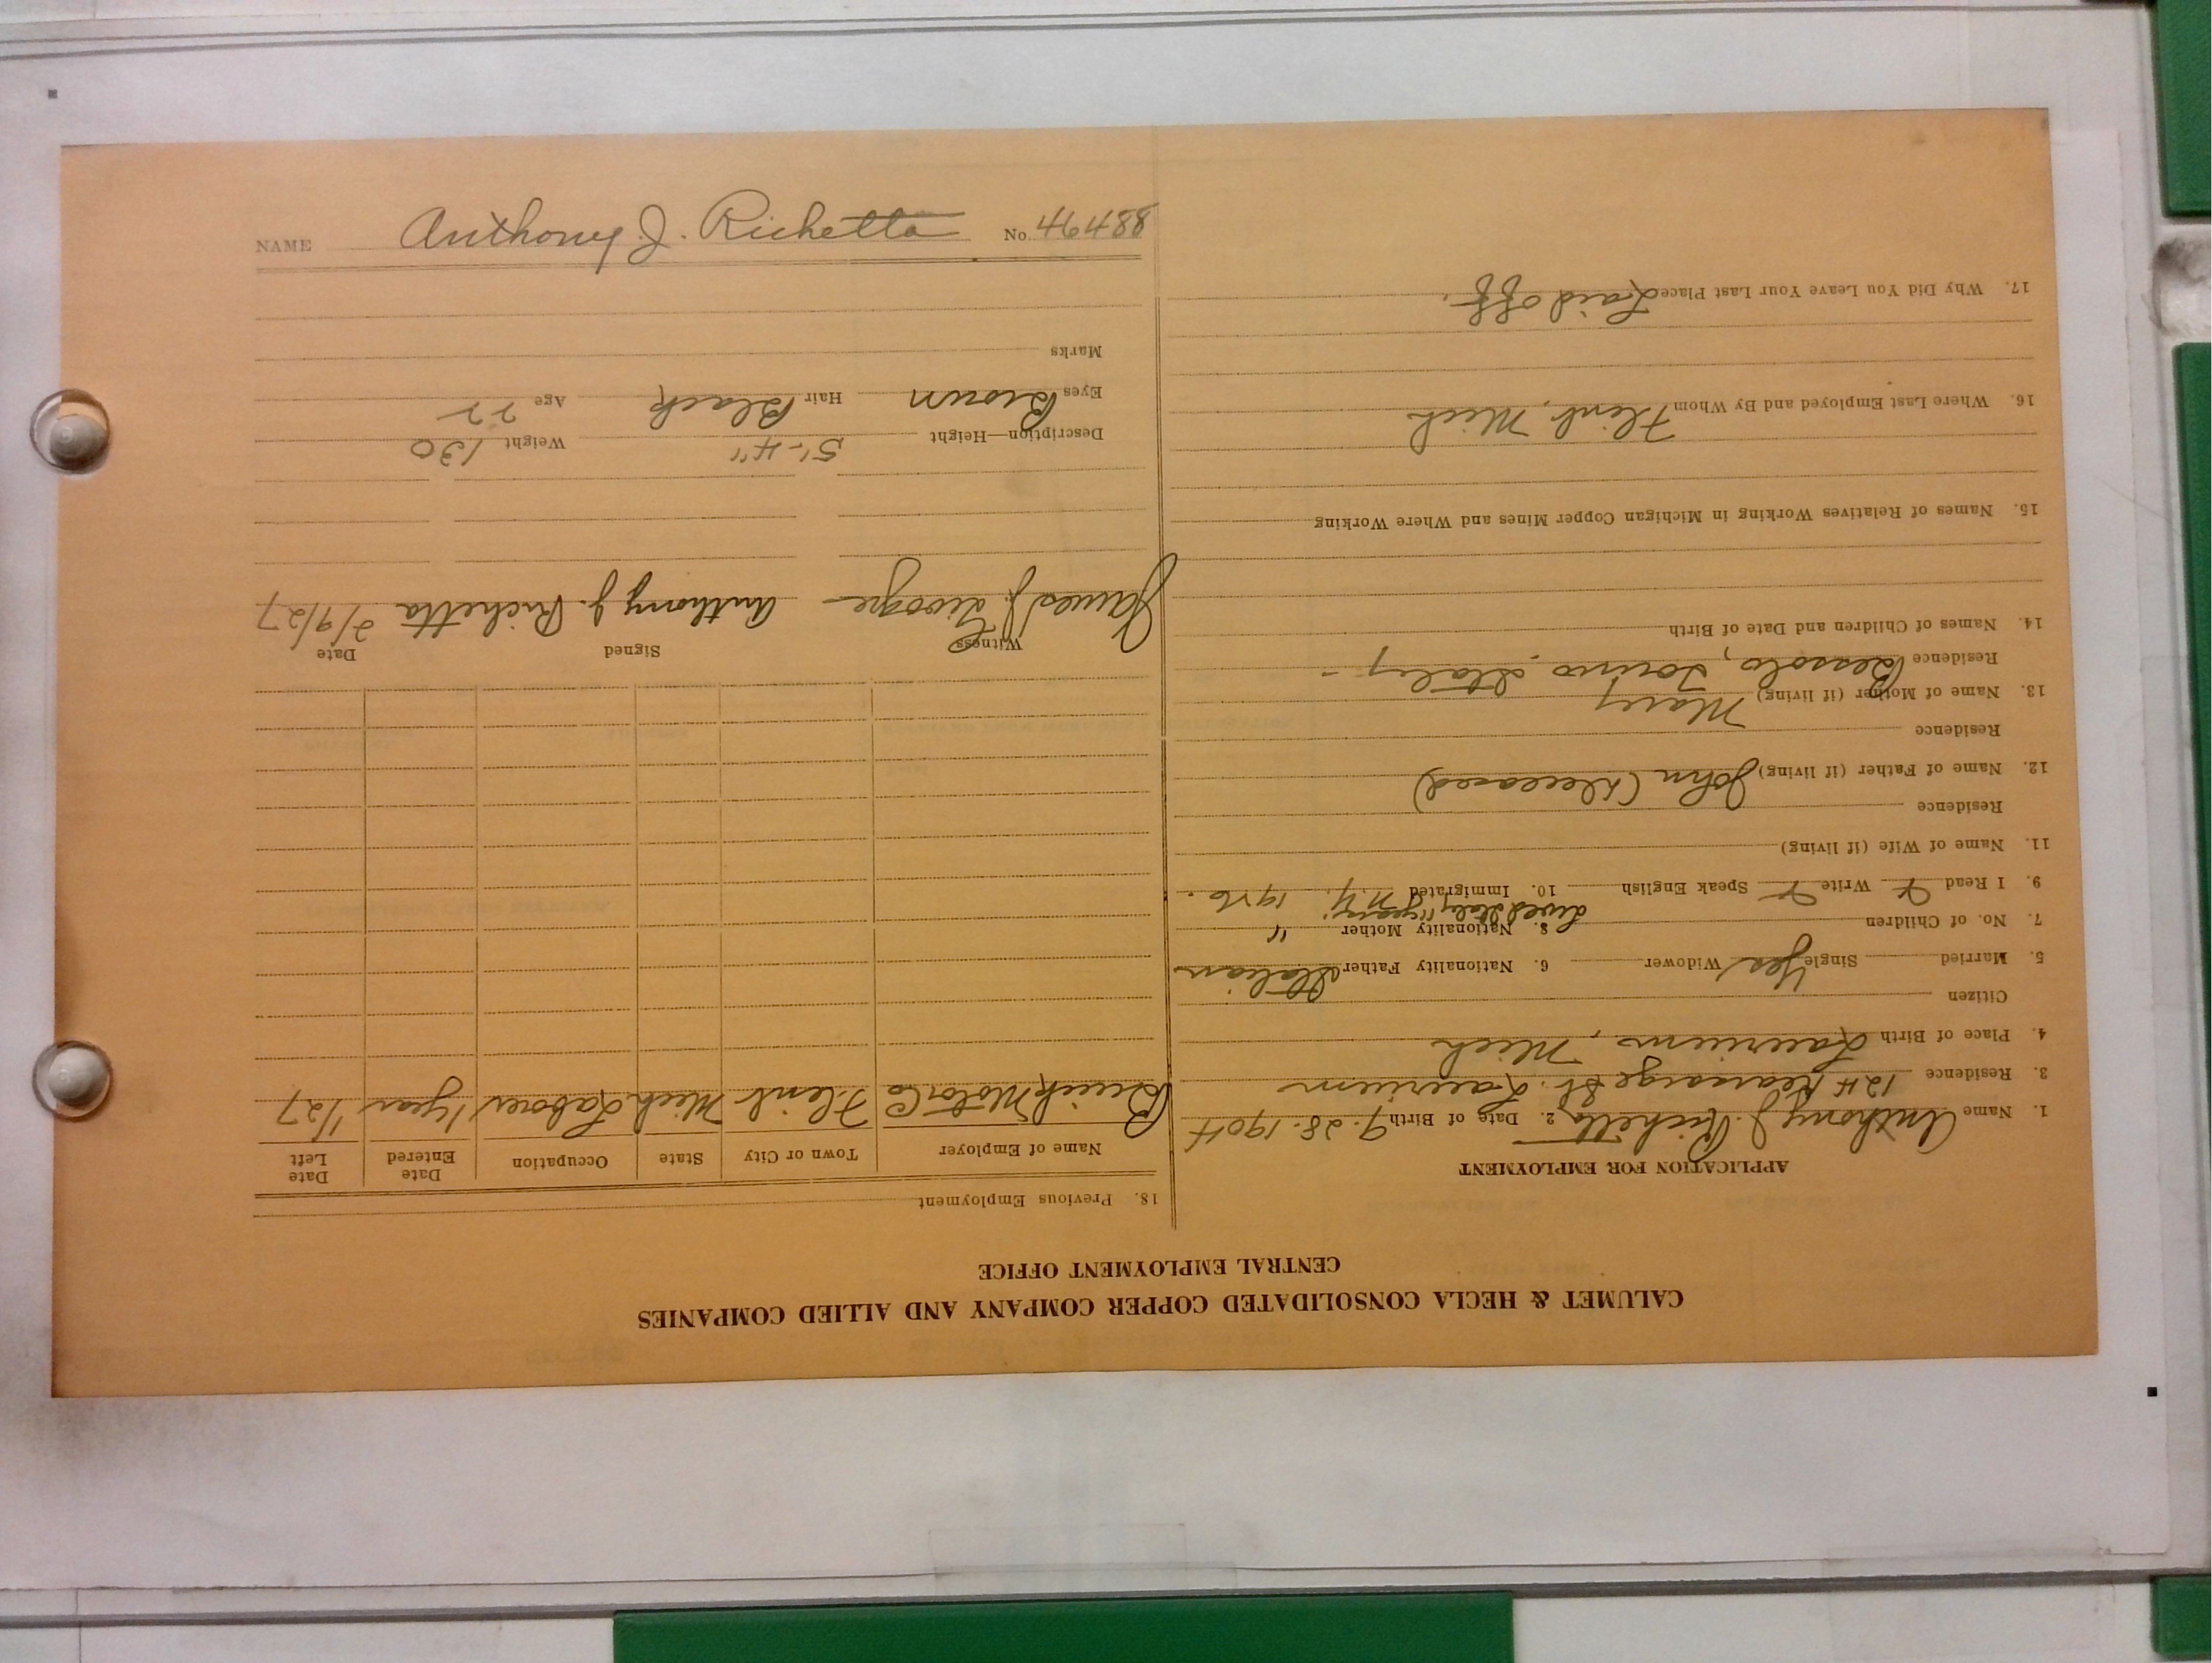 NAME Anthony J. Richetta No. 46488
CALUMET & HECLA CONSOLIDATED COPPER COMPANY AND ALLIED COMPANIES
CENTRAL EMPLOYMENT OFFICE
APPLICATION FOR EMPLOYMENT
1. Name Anthony J. Richetta 2. Date of Birth 9.28.1904
3. Residence 124 Kearsarge St. Laurium
4. Place of Birth Laurium, Mich
Citizen
5. Married Single Yes Widower 6. Nationality Father Italian
7. No. of Children 8. Nationality Mother "
Lived Italy 11 years;
9. I Read Write Speak English 10. Immigrated N.Y. 1926.
11. Name of Wife (if living)
Residence
12. Name of Father (if living) John (Deceased)
Residence
13. Name of Mother (if living) Mary
Residence Bessolo, Torino Italy -
14. Names of Children and Date of Birth
15. Names of Relatives Working in Michigan Copper Mines and Where Working
16. Where Last Employed and By Whom Flint, Mich
17. Why Did You Leave Your Last Place Laid off.
18. Previous Employment
Name of Employer Town or City State Occupation Date Entered Date Left
Buick Motor Co Flint Mich Laborer 1 year 1/27
Witness Signed Date
James J. Anthony J. Richetta 2/9/27
Description—Height 5'-4" Weight 130
Eyes Brown Hair Black Age 22
Marks